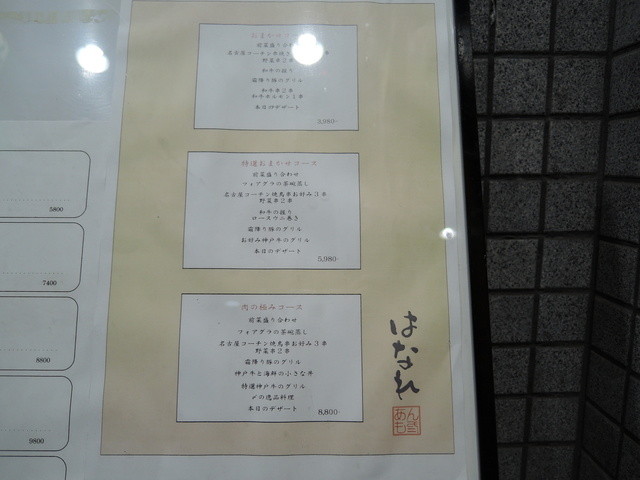 おまかせコース
前菜盛り合わせ
野菜串2串
和牛の握り
霜降り豚のグリル
和牛串2串
和牛ホルモン1串
本日のデザート
3,980-
特選おまかせコース
前菜盛り合わせ
フォアグラの茶碗蒸し
名古屋コーチン焼鳥串お好み3串
野菜串2串
和牛の握り
ロースウニ巻き
霜降り豚のグリル
お好み神戸牛のグリル
本日のデザート
5,980-
肉の極みコース
前菜盛り合わせ
フォアグラの茶碗蒸し
名古屋コーチン焼鳥串お好み3串
野菜串2串
霜降り豚のグリル
神戸牛と海鮮の小さな丼
特選神戸牛のグリル
〆の逸品料理
本日のデザート
8,800-
はなれ
5800
7400
8600
9800